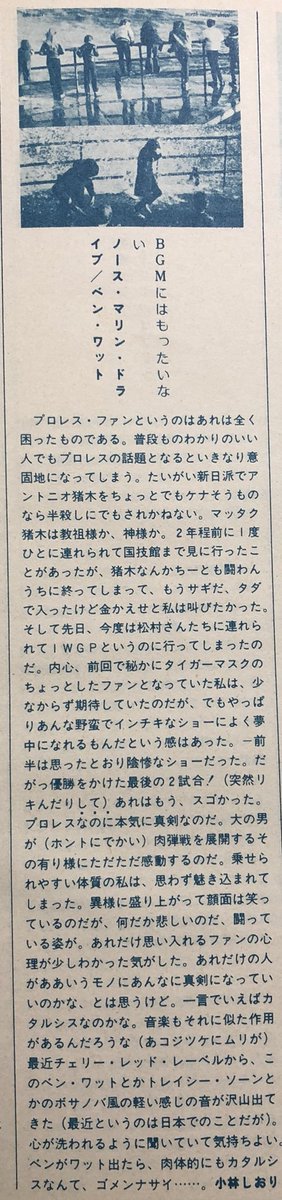 BGMにはもったいな
い
ノース・マリン・ドラ
イブ/ベン・ワット
プロレス・ファンというのはあれは全く
困ったものである。普段ものわかりのいい
人でもプロレスの話題となるといきなり意
固地になってしまう。たいがい新日派でア
ントニオ猪木をちょっとでもケナそうもの
なら半殺しにでもされかねない。マッタク
猪木は教祖様か、神様か。2年程前に1度
ひとに連れられて国技館まで見に行ったこ
とがあったが、猪木なんかちーとも闘わん
うちに終ってしまって、もうサギだ、タダ
で入ったけど金かえせと私は叫びたかった。
そして先日、今度は松村さんたちに連れら
れてIWGPというのに行ってしまったの
だ。内心、前回で秘かにタイガーマスクの
ちょっとしたファンとなっていた私は、少
なからず期待していたのだが、でもやっぱ
りあんな野蛮でインチキなショーによく夢
中になれるもんだという感はあった。—前
半は思ったとおり陰惨なショーだった。だ
がっ優勝をかけた最後の2試合!(突然リ
キんだりして)あれはもう、スゴかった。
プロレスなのに本気に真剣なのだ。大の男
が(ホントにでかい)肉弾戦を展開するそ
の有り様にただただ感動するのだ。乗せら
れやすい体質の私は、思わず魅き込まれて
しまった。異様に盛り上がって顔面は笑っ
ているのだが、何だか悲しいのだ、闘って
いる姿が。あれだけ思い入れるファンの心
理が少しわかった気がした。あれだけの人
がああいうモノにあんなに真剣になってい
いのかな、とは思うけど。一言でいえばカ
タルシスなのかな。音楽もそれに似た作用
があるんだろうな(あコジツケにムリが)
最近チェリー・レッド・レーベルから、こ
のベン・ワットとかトレイシー・ソーンと
かのボサノバ風の軽い感じの音が沢山出て
きた(最近というのは日本でのことだが)。
心が洗われるように聞いていて気持ちよい。
ベンがワット出たら、肉体的にもカタルシ
スなんて、ゴメンナサイ……。小林しおり